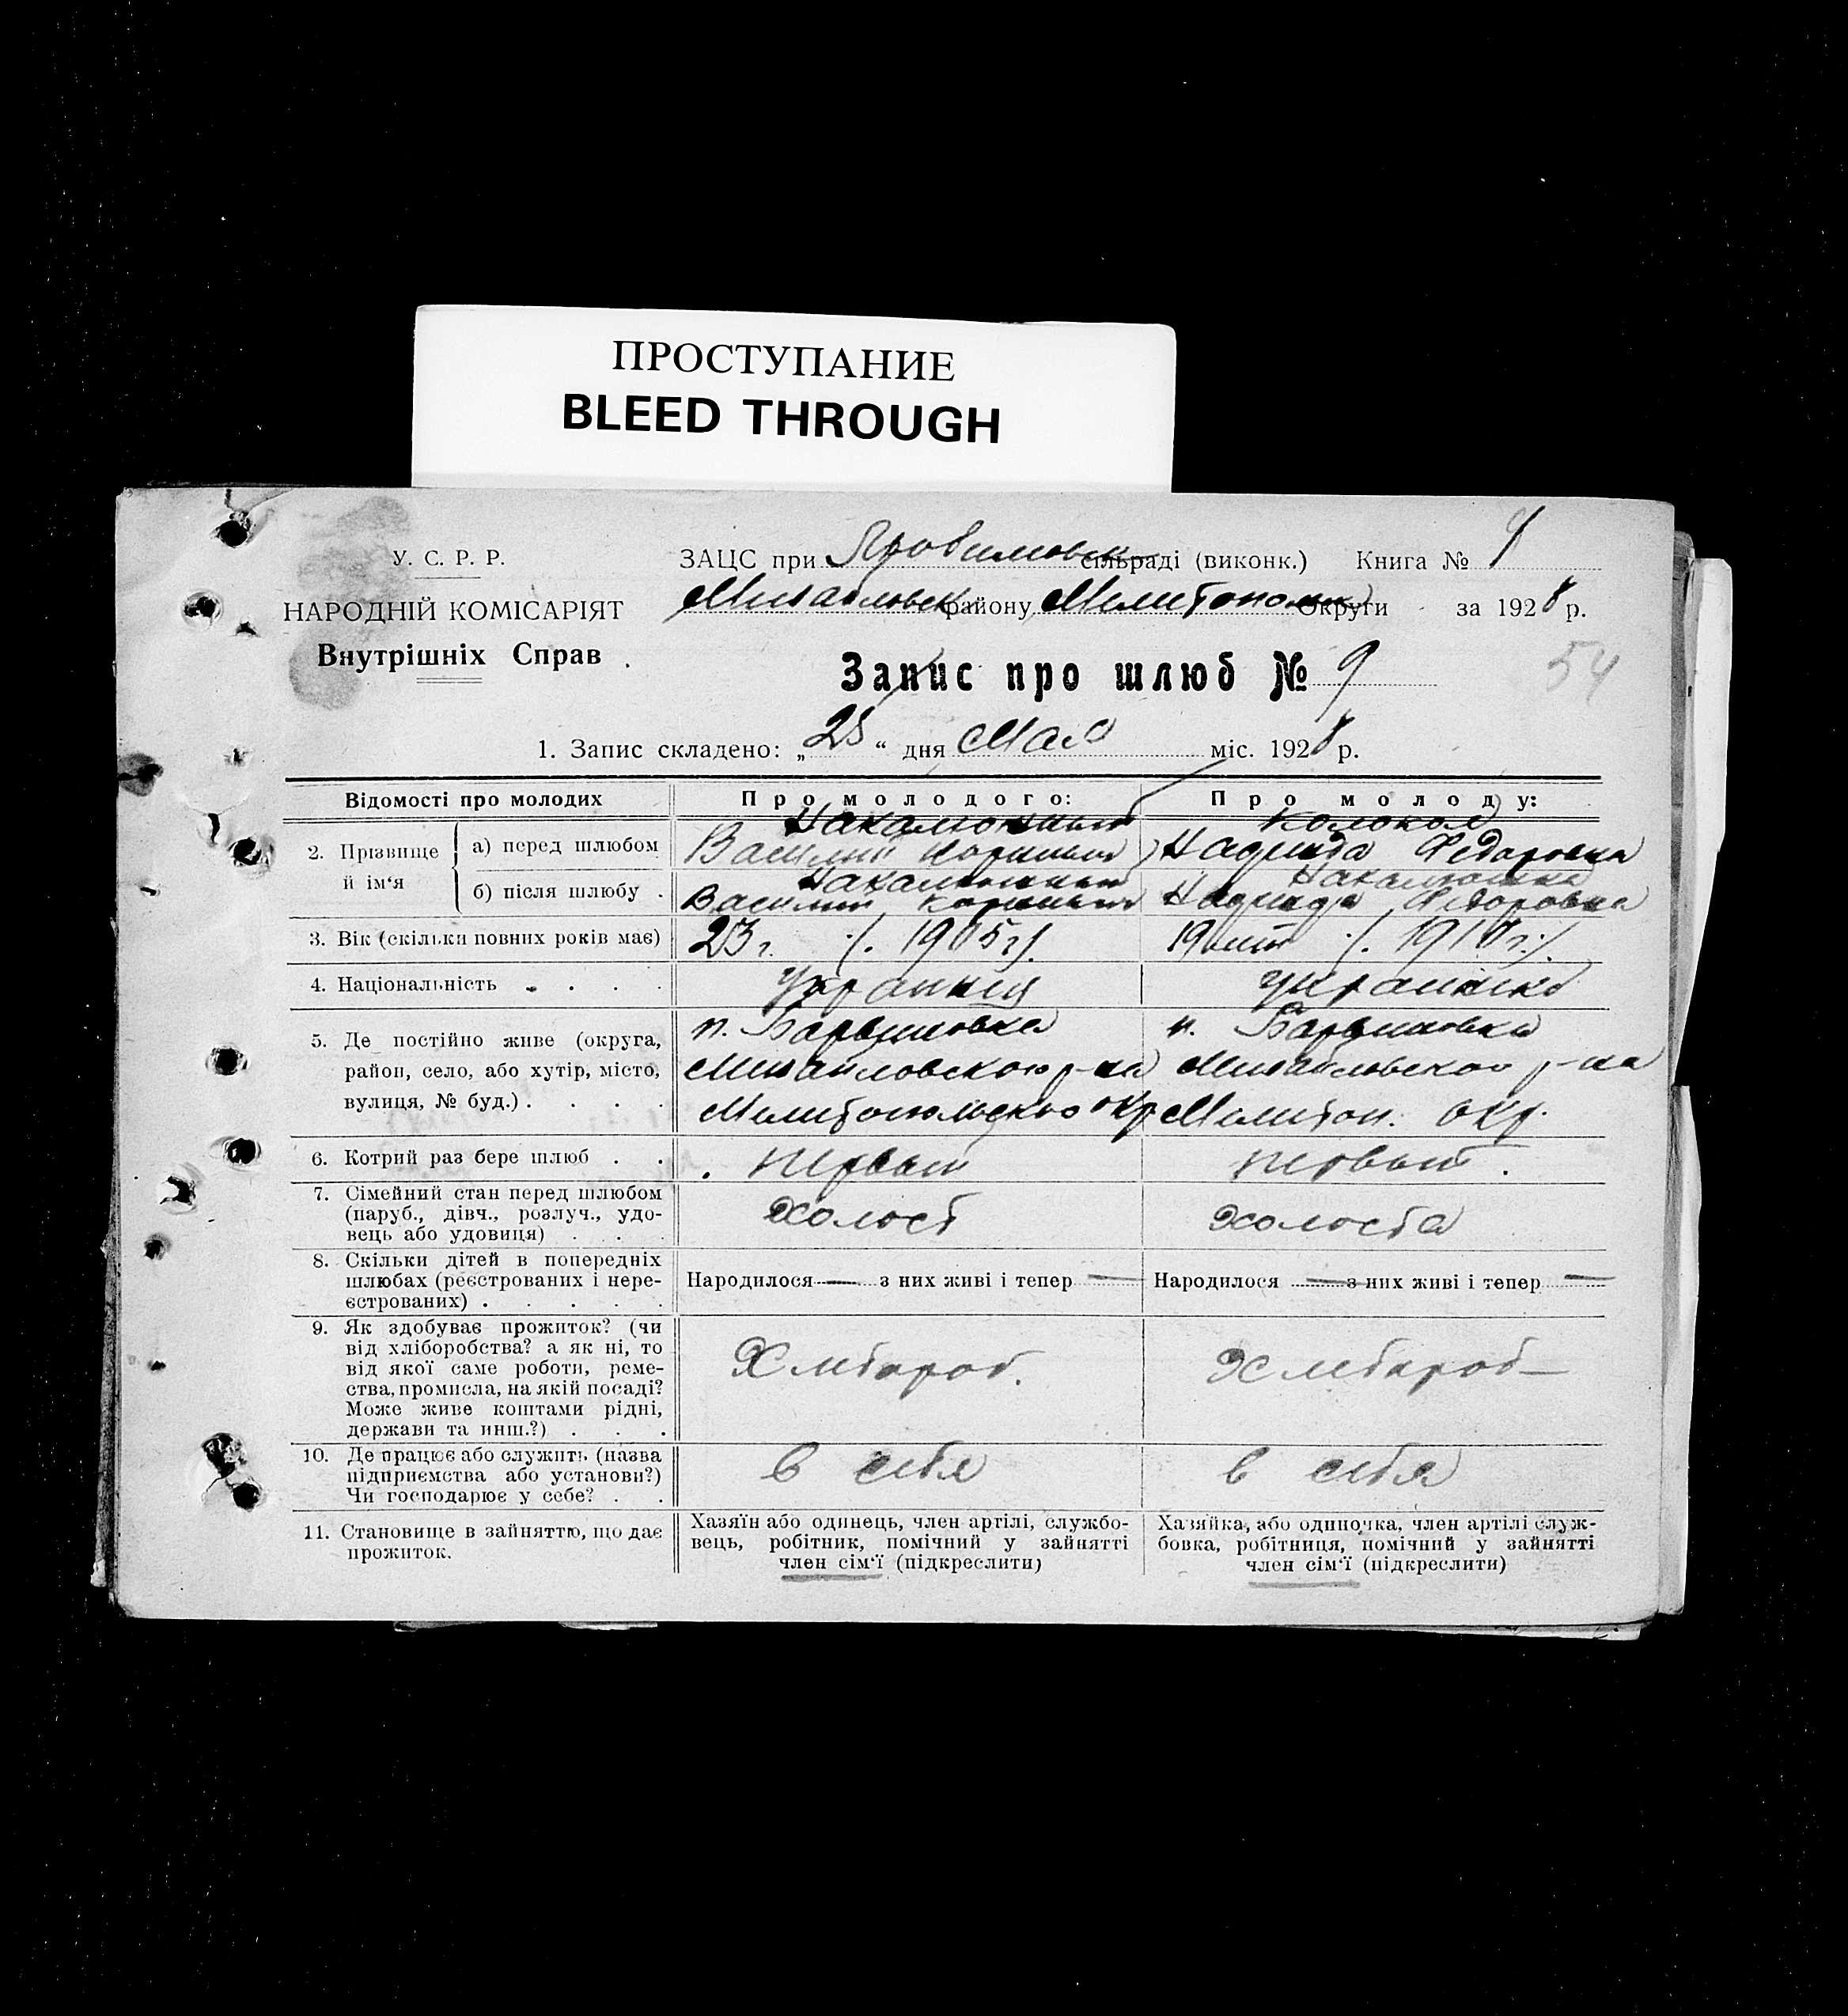 ПРОСТУПАНИЕ
BLEED THROUGH
У. С. Р. Р.
НАРОДНІЙ КОМІСАРІЯТ
Внутрішніх Справ
ЗАЦС при сільраді (виконк.) Книга №
района Мелитопольск Округи за 1928 р.
Запис про шлюб № 9
54
1. Запис складено: „25“ дня Мая міс. 1928 р.
Відомості про молодих
Про молодого:
Про молоду:
2. Прізвище й ім'я
а) перед шлюбом
Василий
Колокол
Надежда Федоровна
б) після шлюбу
Василий
Надежда Федоровна
3. Вік (скільки повних років має)
23 г. /. 1905 г./.
19 лет /. г./.
4. Національність
Украинец
Украинка
5. Де постійно живе (округа, район, село, або хутір, місто, вулиця, № буд.)
Михайловского р-на
Мелитопольского окр
Михайловского р-на
Мелитоп. окр.
6. Котрий раз бере шлюб
первый
первый
7. Сімейний стан перед шлюбом (паруб., дівч., розлуч., удовець або удовиця)
холост
холоста
8. Скільки дітей в попередніх шлюбах (реєстрованих і нереєстрованих)
Народилося — з них живі і тепер —
Народилося — з них живі і тепер —
9. Як здобуває прожиток? (чи від хліборобства? а як ні, то від якої саме роботи, ремества, промисла, на якій посаді? Може живе коштами рідні, держави та инш.?)
Хлебороб.
Хлебороб —
10. Де працює або служить (назва підприємства або установи?) Чи господарює у себе?
в себя
в себя
11. Становище в зайняттю, що дає прожиток.
Хазяїн або одинець, член артілі, службовець, робітник, помічний у зайнятті член сім'ї (підкреслити)
Хазяйка, або одиночка, член артілі службовка, робітниця, помічний у зайнятті член сім'ї (підкреслити)